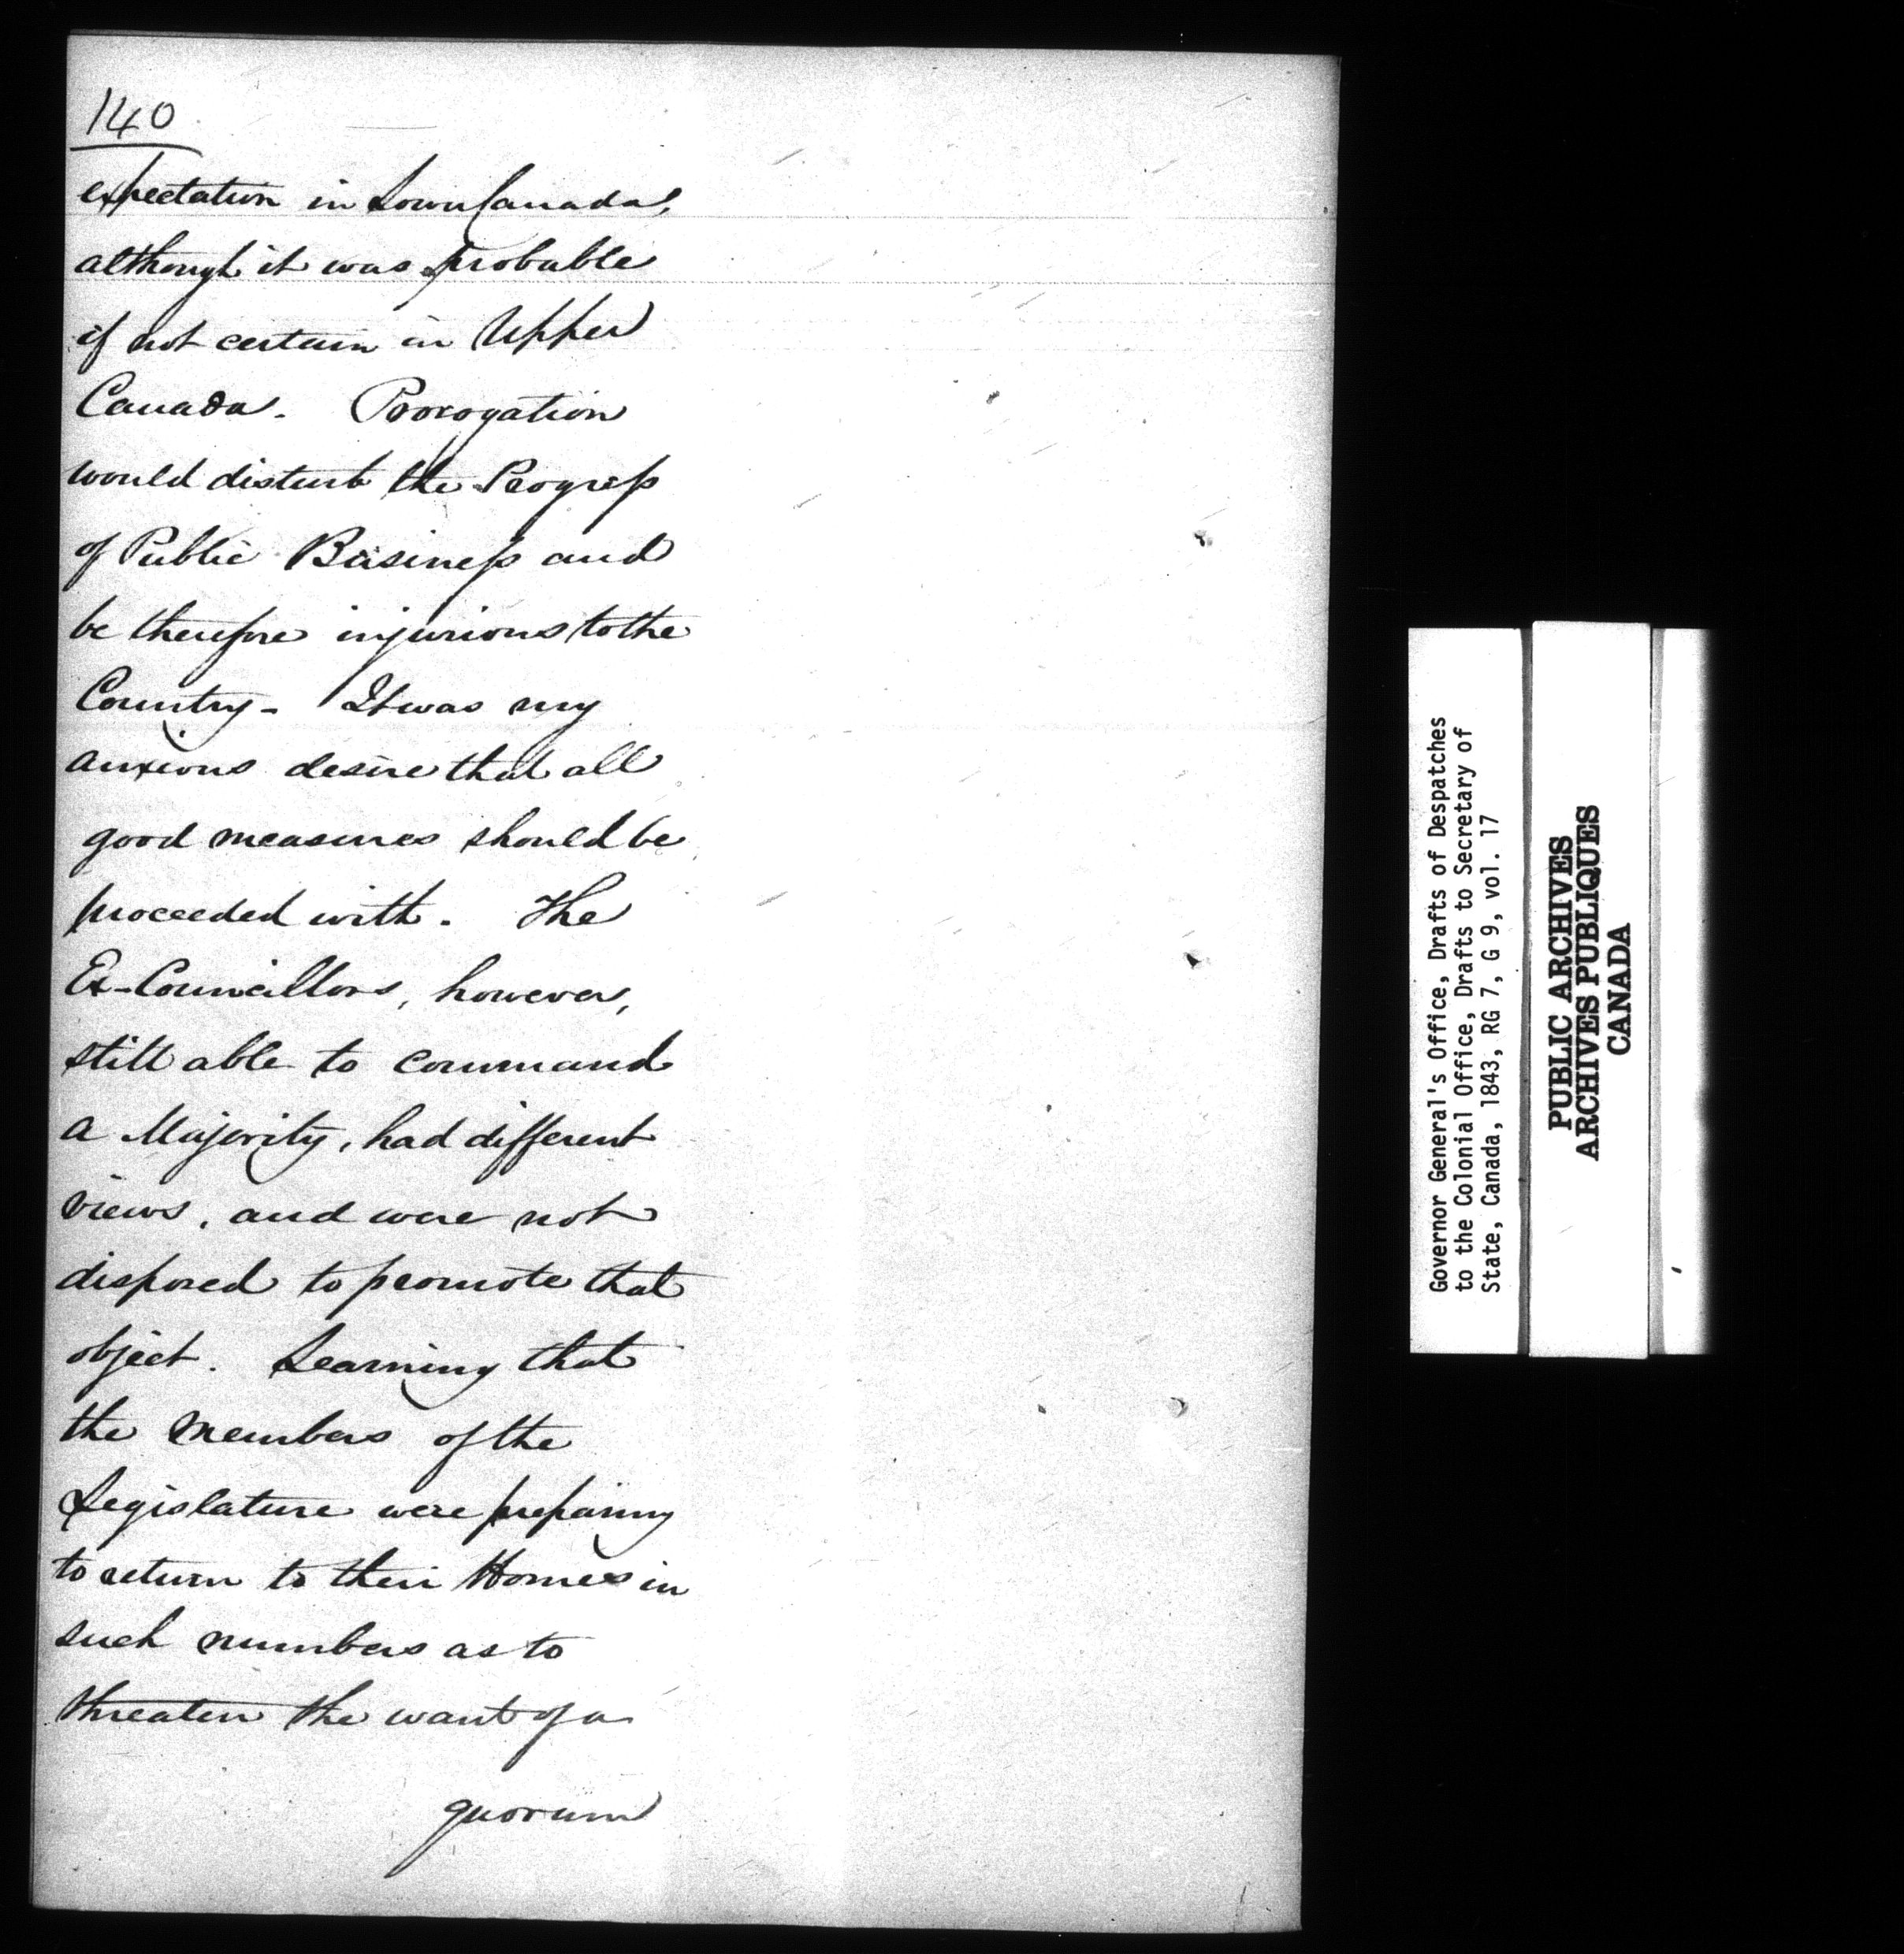 140
expectation in Lower Canada,
although it was probable
if not certain in Upper
Canada. Prorogation
would disturb the Progress
of Public Business and
be therefore injurious to the
Country - It was my
anxious desire that all
good measures should be
proceeded with. The
Ex-Councillors, however,
still able to command
a Majority, had different
views, and were not
disposed to promote that
object. Learning that
the Members of the
Legislature were preparing
to return to their Homes in
such numbers as to
threaten the want of a
quorum
Governor General's Office, Drafts of Despatches
to the Colonial Office, Drafts to Secretary of
State, Canada, 1843, RG 7, G 9, vol. 17
PUBLIC ARCHIVES
ARCHIVES PUBLIQUES
CANADA